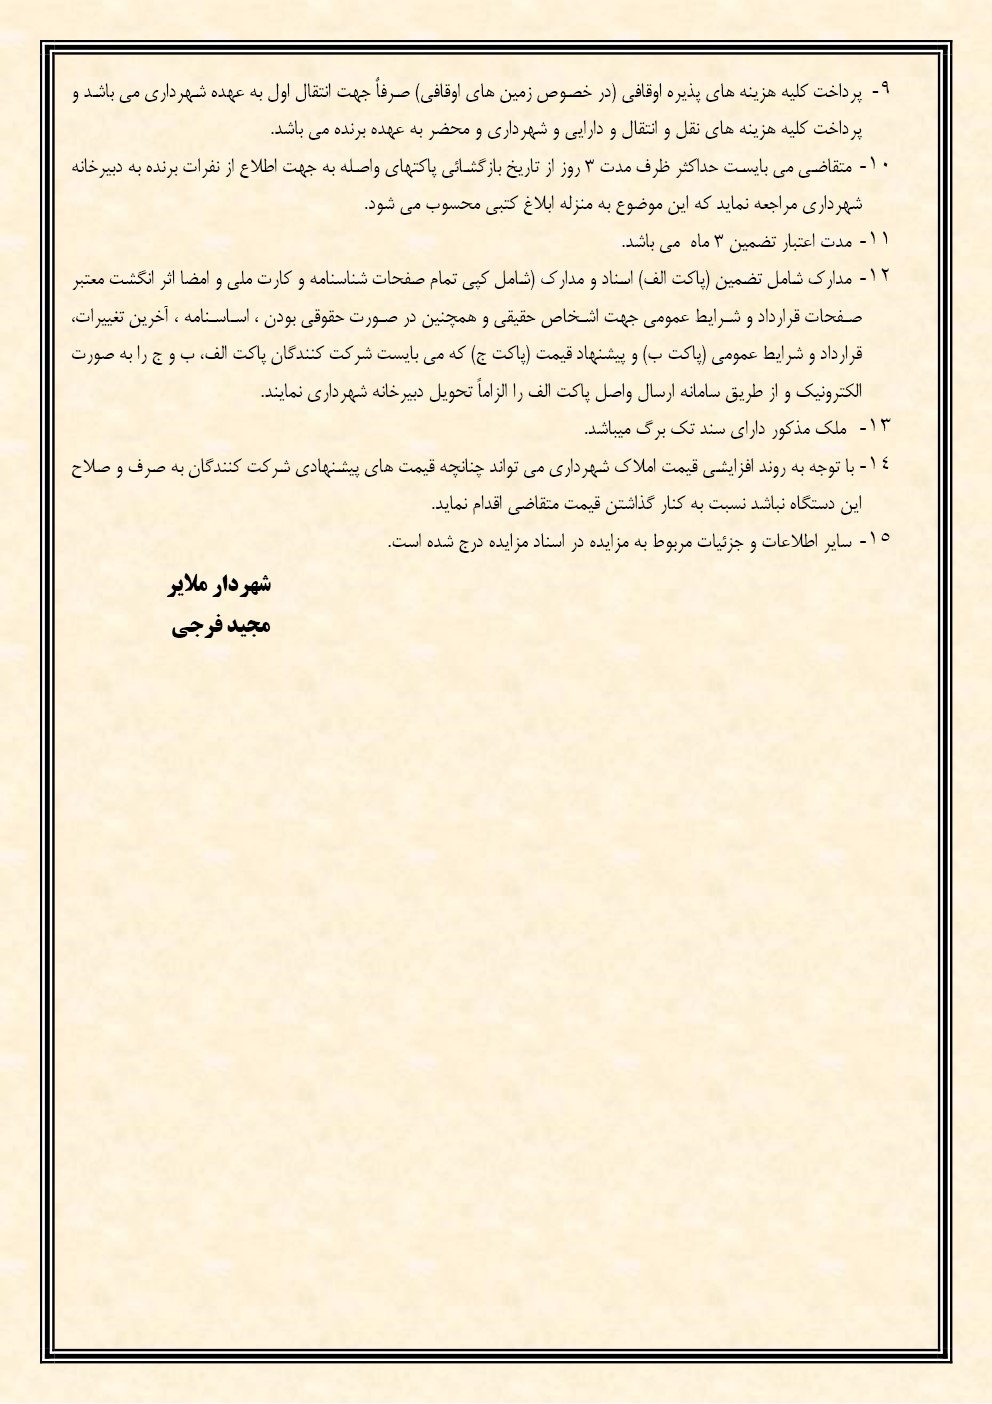 ۹- پرداخت کلیه هزینه های پذیره اوقافی (در خصوص زمین های اوقافی) صرفاً جهت انتقال اول به عهده شهرداری می باشد و
پرداخت کلیه هزینه های نقل و انتقال و دارایی و شهرداری و محضر به عهده برنده می باشد.
۱۰- متقاضی می بایست حداکثر ظرف مدت ۳ روز از تاریخ بازگشائی پاکتهای واصله به جهت اطلاع از نفرات برنده به دبیرخانه
شهرداری مراجعه نماید که این موضوع به منزله ابلاغ کتبی محسوب می شود.
۱۱- مدت اعتبار تضمین ۳ ماه می باشد.
۱۲- مدارک شامل تضمین (پاکت الف) اسناد و مدارک (شامل کپی تمام صفحات شناسنامه و کارت ملی و امضا اثر انگشت معتبر
صفحات قرارداد و شرایط عمومی جهت اشخاص حقیقی و همچنین در صورت حقوقی بودن ، اساسنامه ، آخرین تغییرات،
قرارداد و شرایط عمومی (پاکت ب) و پیشنهاد قیمت (پاکت ج) که می بایست شرکت کنندگان پاکت الف، ب و ج را به صورت
الکترونیک و از طریق سامانه ارسال واصل پاکت الف را الزاماً تحویل دبیرخانه شهرداری نمایند.
۱۳- ملک مذکور دارای سند تک برگ میباشد.
۱٤- با توجه به روند افزایشی قیمت املاک شهرداری می تواند چنانچه قیمت های پیشنهادی شرکت کنندگان به صرف و صلاح
این دستگاه نباشد نسبت به کنار گذاشتن قیمت متقاضی اقدام نماید.
۱۵- سایر اطلاعات و جزئیات مربوط به مزایده در اسناد مزایده درج شده است.
شهردار ملایر
مجید فرجی